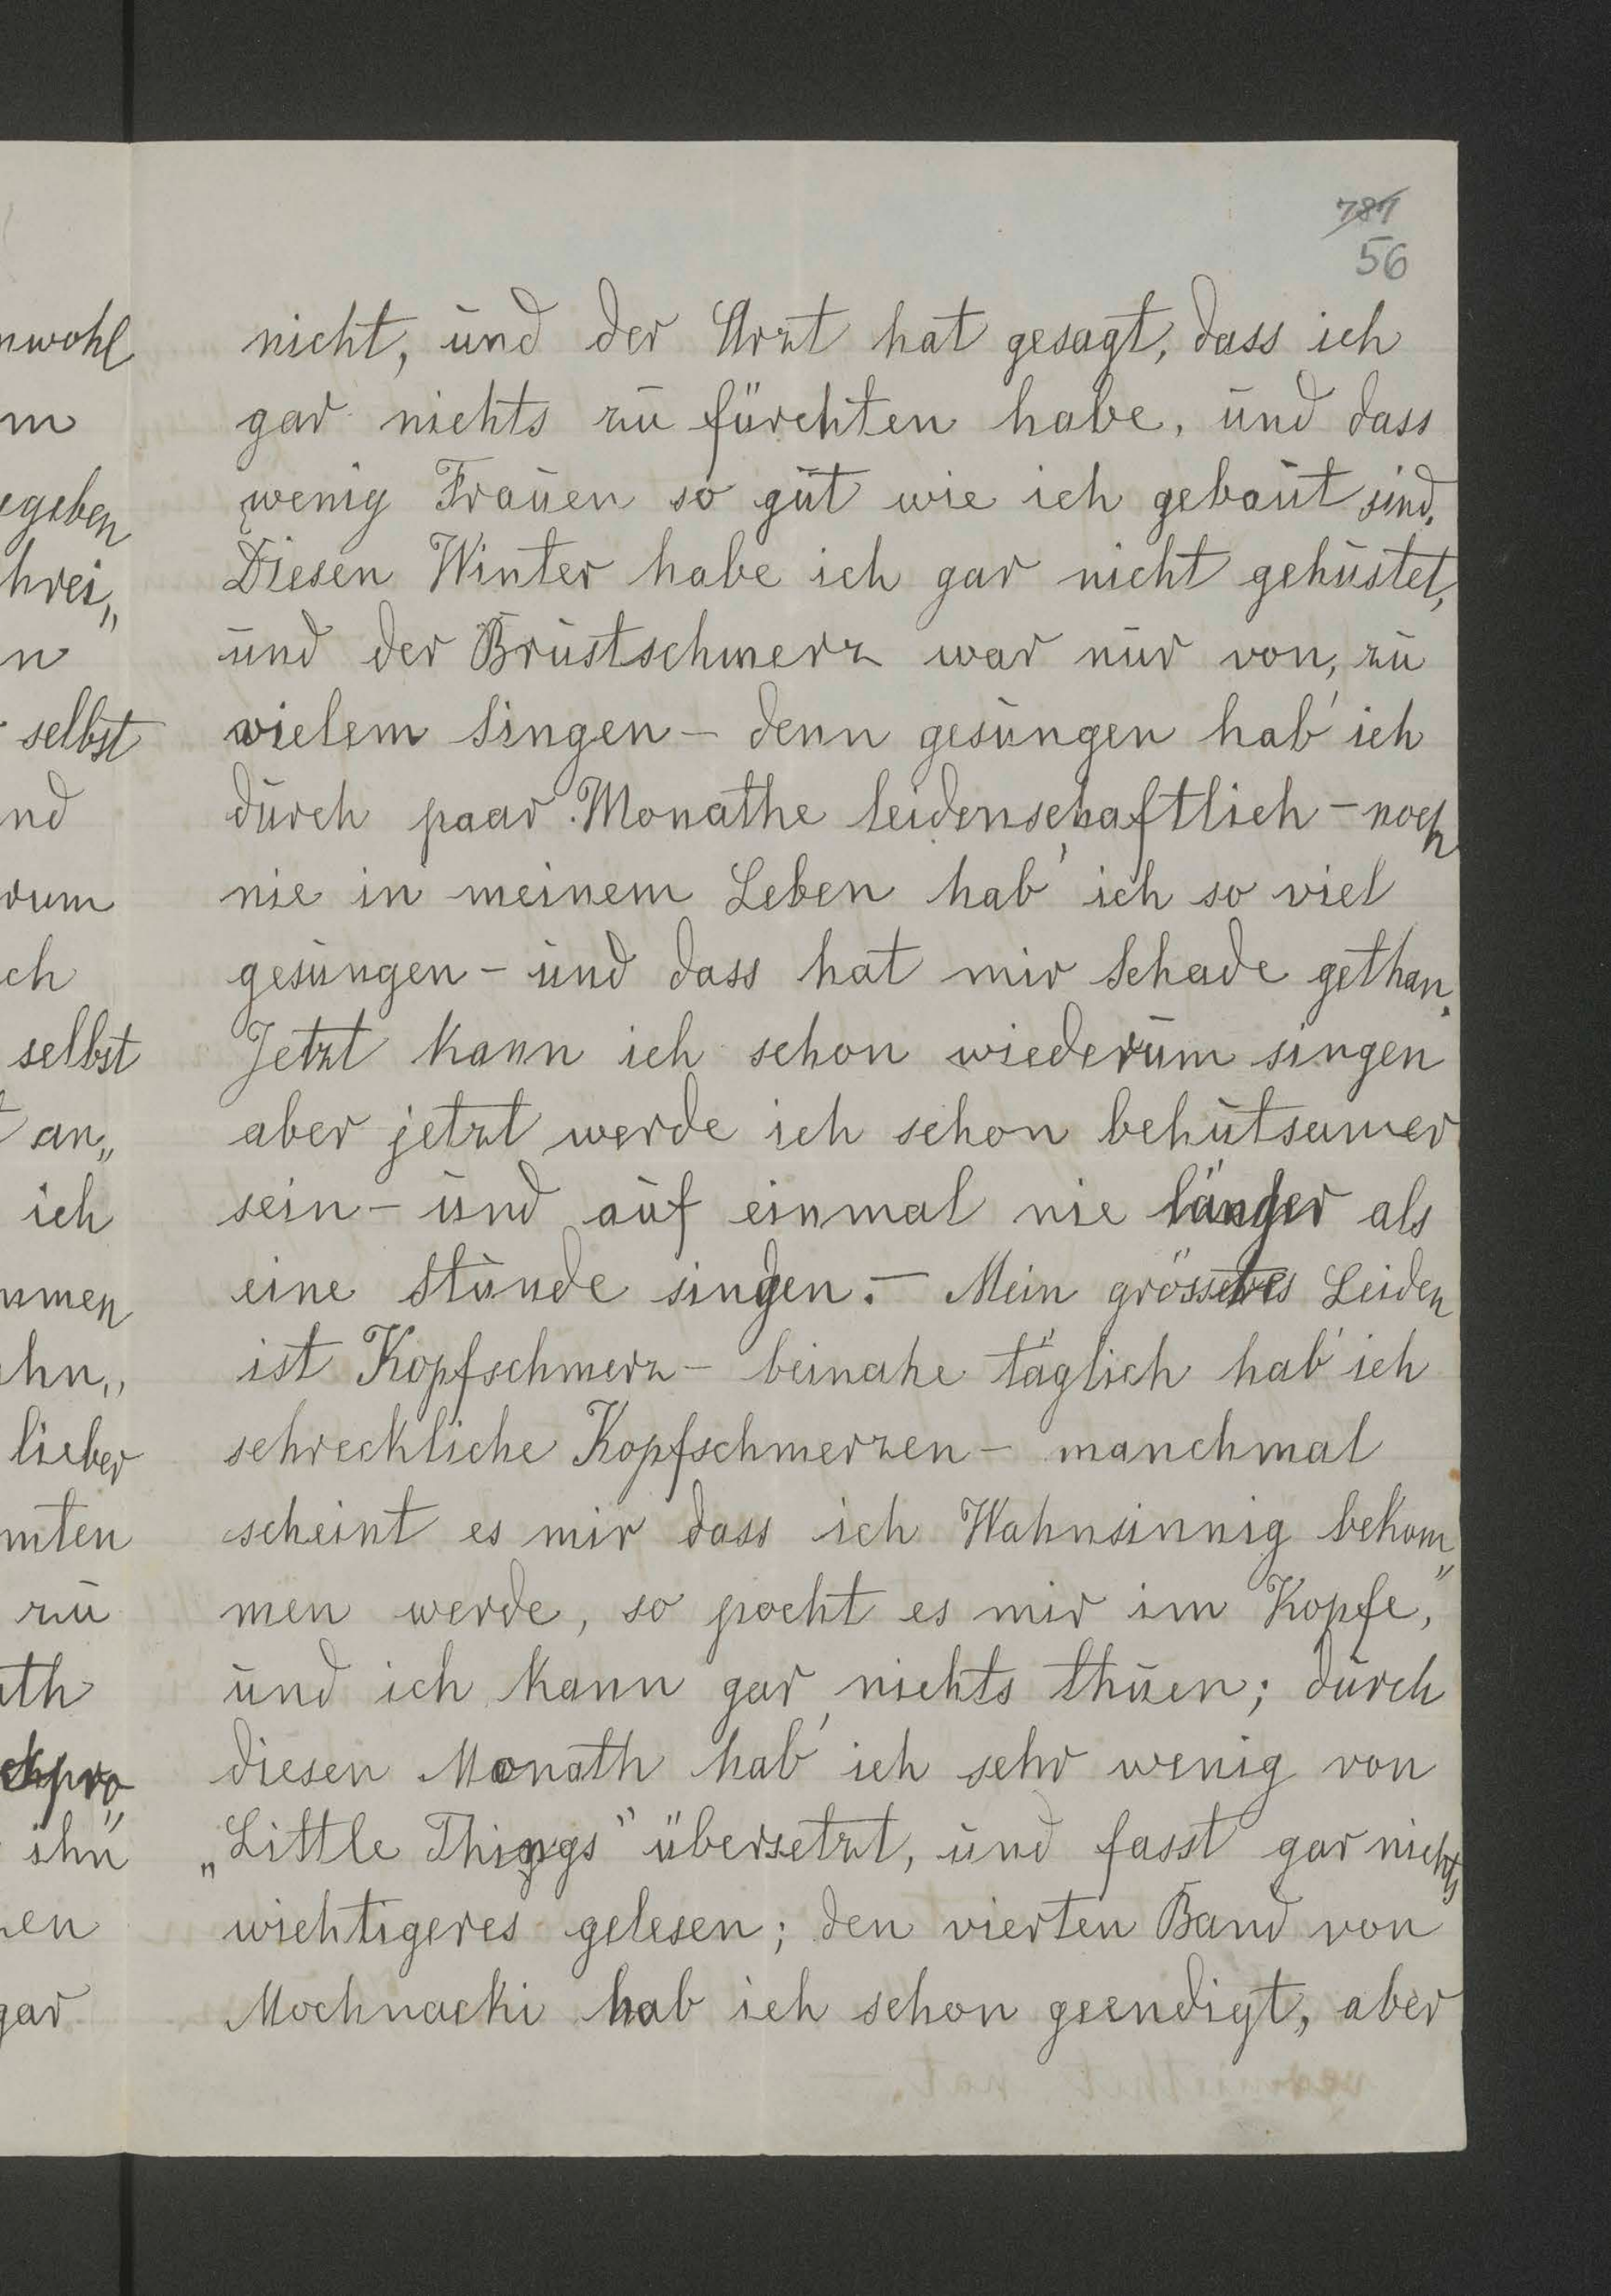 787
56
nicht, und der Arzt hat gesagt, dass ich
gar nichts zu fürchten habe, und dass
wenig Frauen so gut wie ich gebaut sind.
Diesen Winter habe ich gar nicht gehustet,
und der Brustschmerz war nur von, zu
vielem Singen – denn gesungen hab' ich
durch paar Monathe leidenschaftlich – noch
nie in meinem Leben hab' ich so viel
gesungen – und dass hat mir Schade gethan.
Jetzt kann ich schon wiederum singen
aber jetzt werde ich schon behutsamer
sein – und auf einmal nie länger als
eine Stunde singen. – Mein grösstes Leiden
ist Kopfschmerz – beinahe täglich hab' ich
schreckliche Kopfschmerzen – manchmal
scheint es mir dass ich Wahnsinnig bekom„
men werde, so pocht es mir im Kopfe,
und ich kann gar nichts thuen; durch
diesen Monath hab' ich sehr wenig von
„Little Things" übersetzt, und fasst gar nichts
wichtigeres gelesen; den vierten Band von
Mochnacki hab ich schon geendigt, aber
nwohl
m
egeben
hrei„
n
selbst
nd
rum
ch
selbst
an„
ich
mmen
hn„
lieber
mten
zu
ath
ihn
en
gar